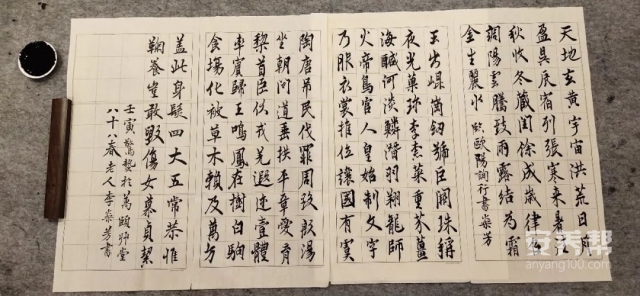 天地玄黄宇宙洪荒日月
盈昃辰宿列張寒来暑往
秋收冬藏闰餘成歲律吕
調陽雲騰致雨露結為霜
金生麗水 欧陽詢行書 燊芳
玉出崐崗劒號巨闕珠稱
夜光菓珎李柰菜重芥薑
海醎河淡鱗潛羽翔龍師
火帝鳥官人皇始制文字
乃服衣裳推位讓國有虞
陶唐吊民伐罪周發殷湯
坐朝問道垂拱平章愛育
黎首臣伏戎羌遐迩壹體
率賓歸王鳴鳳在樹白駒
食場化被草木賴及萬方
盖此身髮四大五常恭惟
鞠養豈敢毀傷女慕貞絜
壬寅驚蟄於萬頤師堂
八十八春老人李燊芳書
anyang100.com